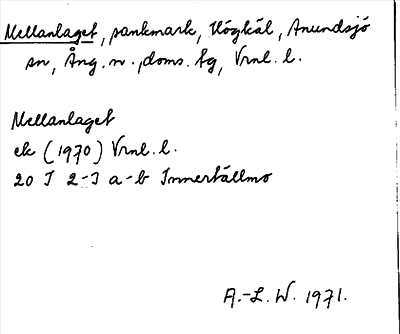 Mellanlaget, sankmark, Högkäl, Anundsjö
sn, Ång. n., doms. fg, Vrnl. l.
Mellanlaget
ek (1970) Vrnl. l.
20 I 2-3 a-b Innertällmo
A.-L. W. 1971.